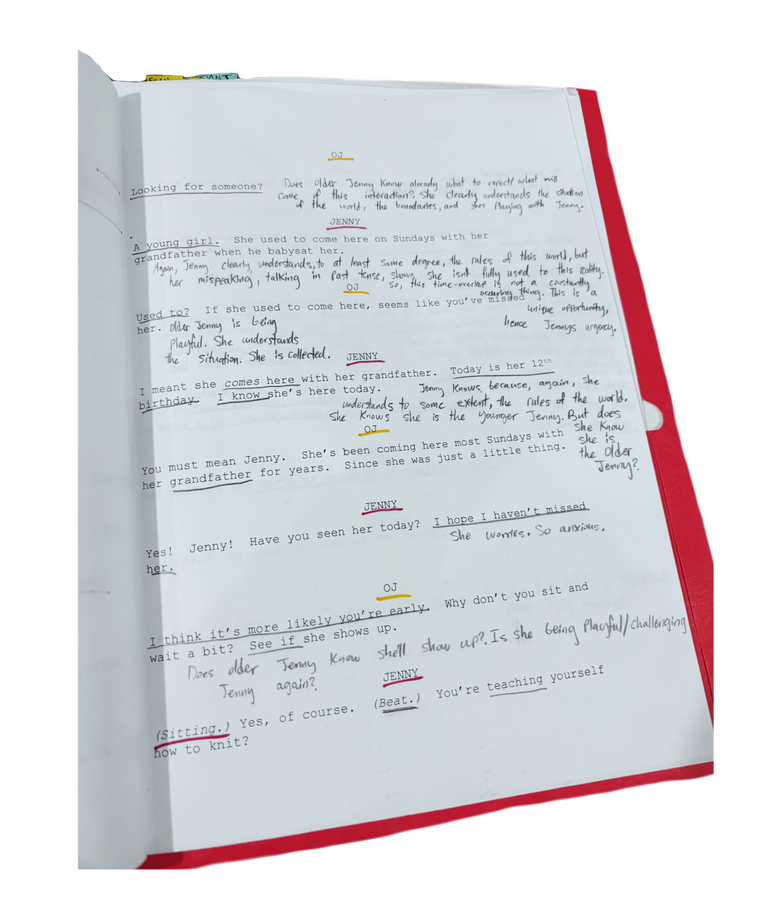 OJ
Looking for someone?
Does older Jenny know already what to expect/what will
come of this interaction? She clearly understands the
of the world, the boundaries, and shes playing with Jenny.
JENNY
A young girl. She used to come here on Sundays with her
grandfather when he babysat her.
Again, Jenny clearly, understands, to at least some degree, the rules of this world, but
her mispeaking, talking in past tense, shows she isnt fully used to this reality.
OJ
So, this time-overlap is not a constantly
occuring thing. This is a
unique opportunity,
hence Jennys urgency.
Used to? If she used to come here, seems like you've missed
her.
older Jenny is being
playful. She understands
the situation. She is collected.
JENNY
I meant she comes here with her grandfather. Today is her 12th
birthday. I know she's here today.
Jenny knows because, again, she
understands to some extent, the rules of the world.
She knows she is the younger Jenny. But does
she know
she is
the older
Jenny?
OJ
You must mean Jenny. She's been coming here most Sundays with
her grandfather for years. Since she was just a little thing.
JENNY
Yes! Jenny! Have you seen her today? I hope I haven't missed
her.
She worries. So anxious.
OJ
I think it's more likely you're early. Why don't you sit and
wait a bit? See if she shows up.
Does older Jenny know shell show up? Is she being playful/challenging
Jenny again?
JENNY
(Sitting.) Yes, of course. (Beat.) You're teaching yourself
how to knit?